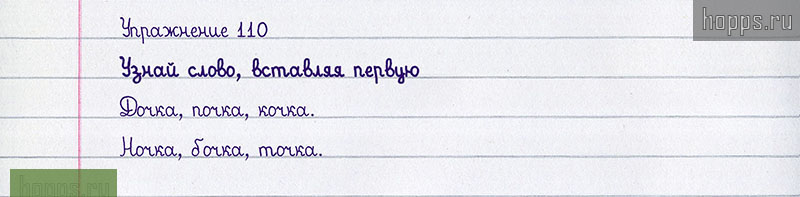 hopps.ru
Упражнение 110
Узнай слово, вставляя первую
Дочка, почка, кочка.
Ночка, бочка, точка.
hopps.ru